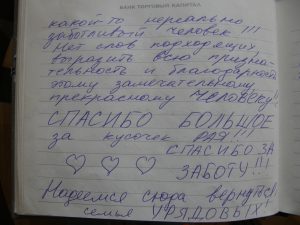 БАНК ТОРГОВЫЙ КАПИТАЛ
какой то нереально
заботливый человек !!!
Нет слов подходящих
выразить всю призна-
тельность и благодарность
этому замечательному
прекрасному человеку!
СПАСИБО БОЛЬШОЕ
за кусочек РАЯ!!!
СПАСИБО ЗА
ЗАБОТУ!!!
Надеемся сюда вернуться!
семья УРЯДОВЫХ!